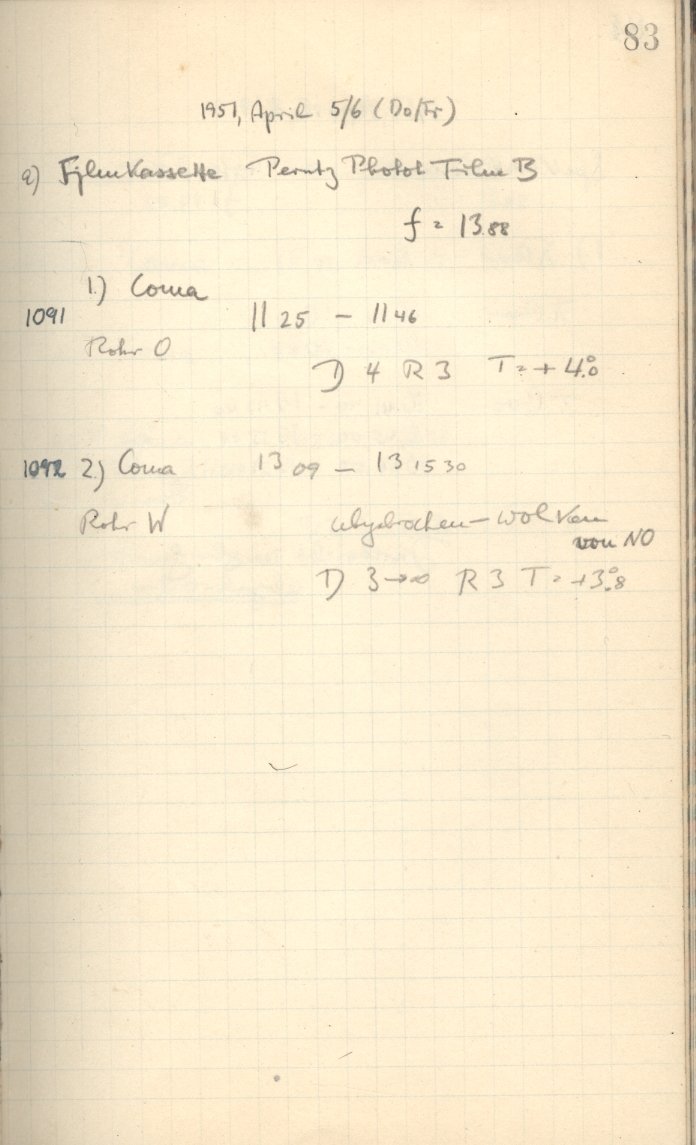 83
1951, April 5/6 (Do/Fr)
a) Filmkassette Perutz Photot Film B
f = 13.88
1.) Coma
1091 11 25 – 11 46
Rohr O
D 4 R 3 T = + 4°.0
1092 2.) Coma 13 09 – 13 15 30
Rohr W abgebrochen – Wolken
von NO
D 3→∞ R 3 T = +3°.8